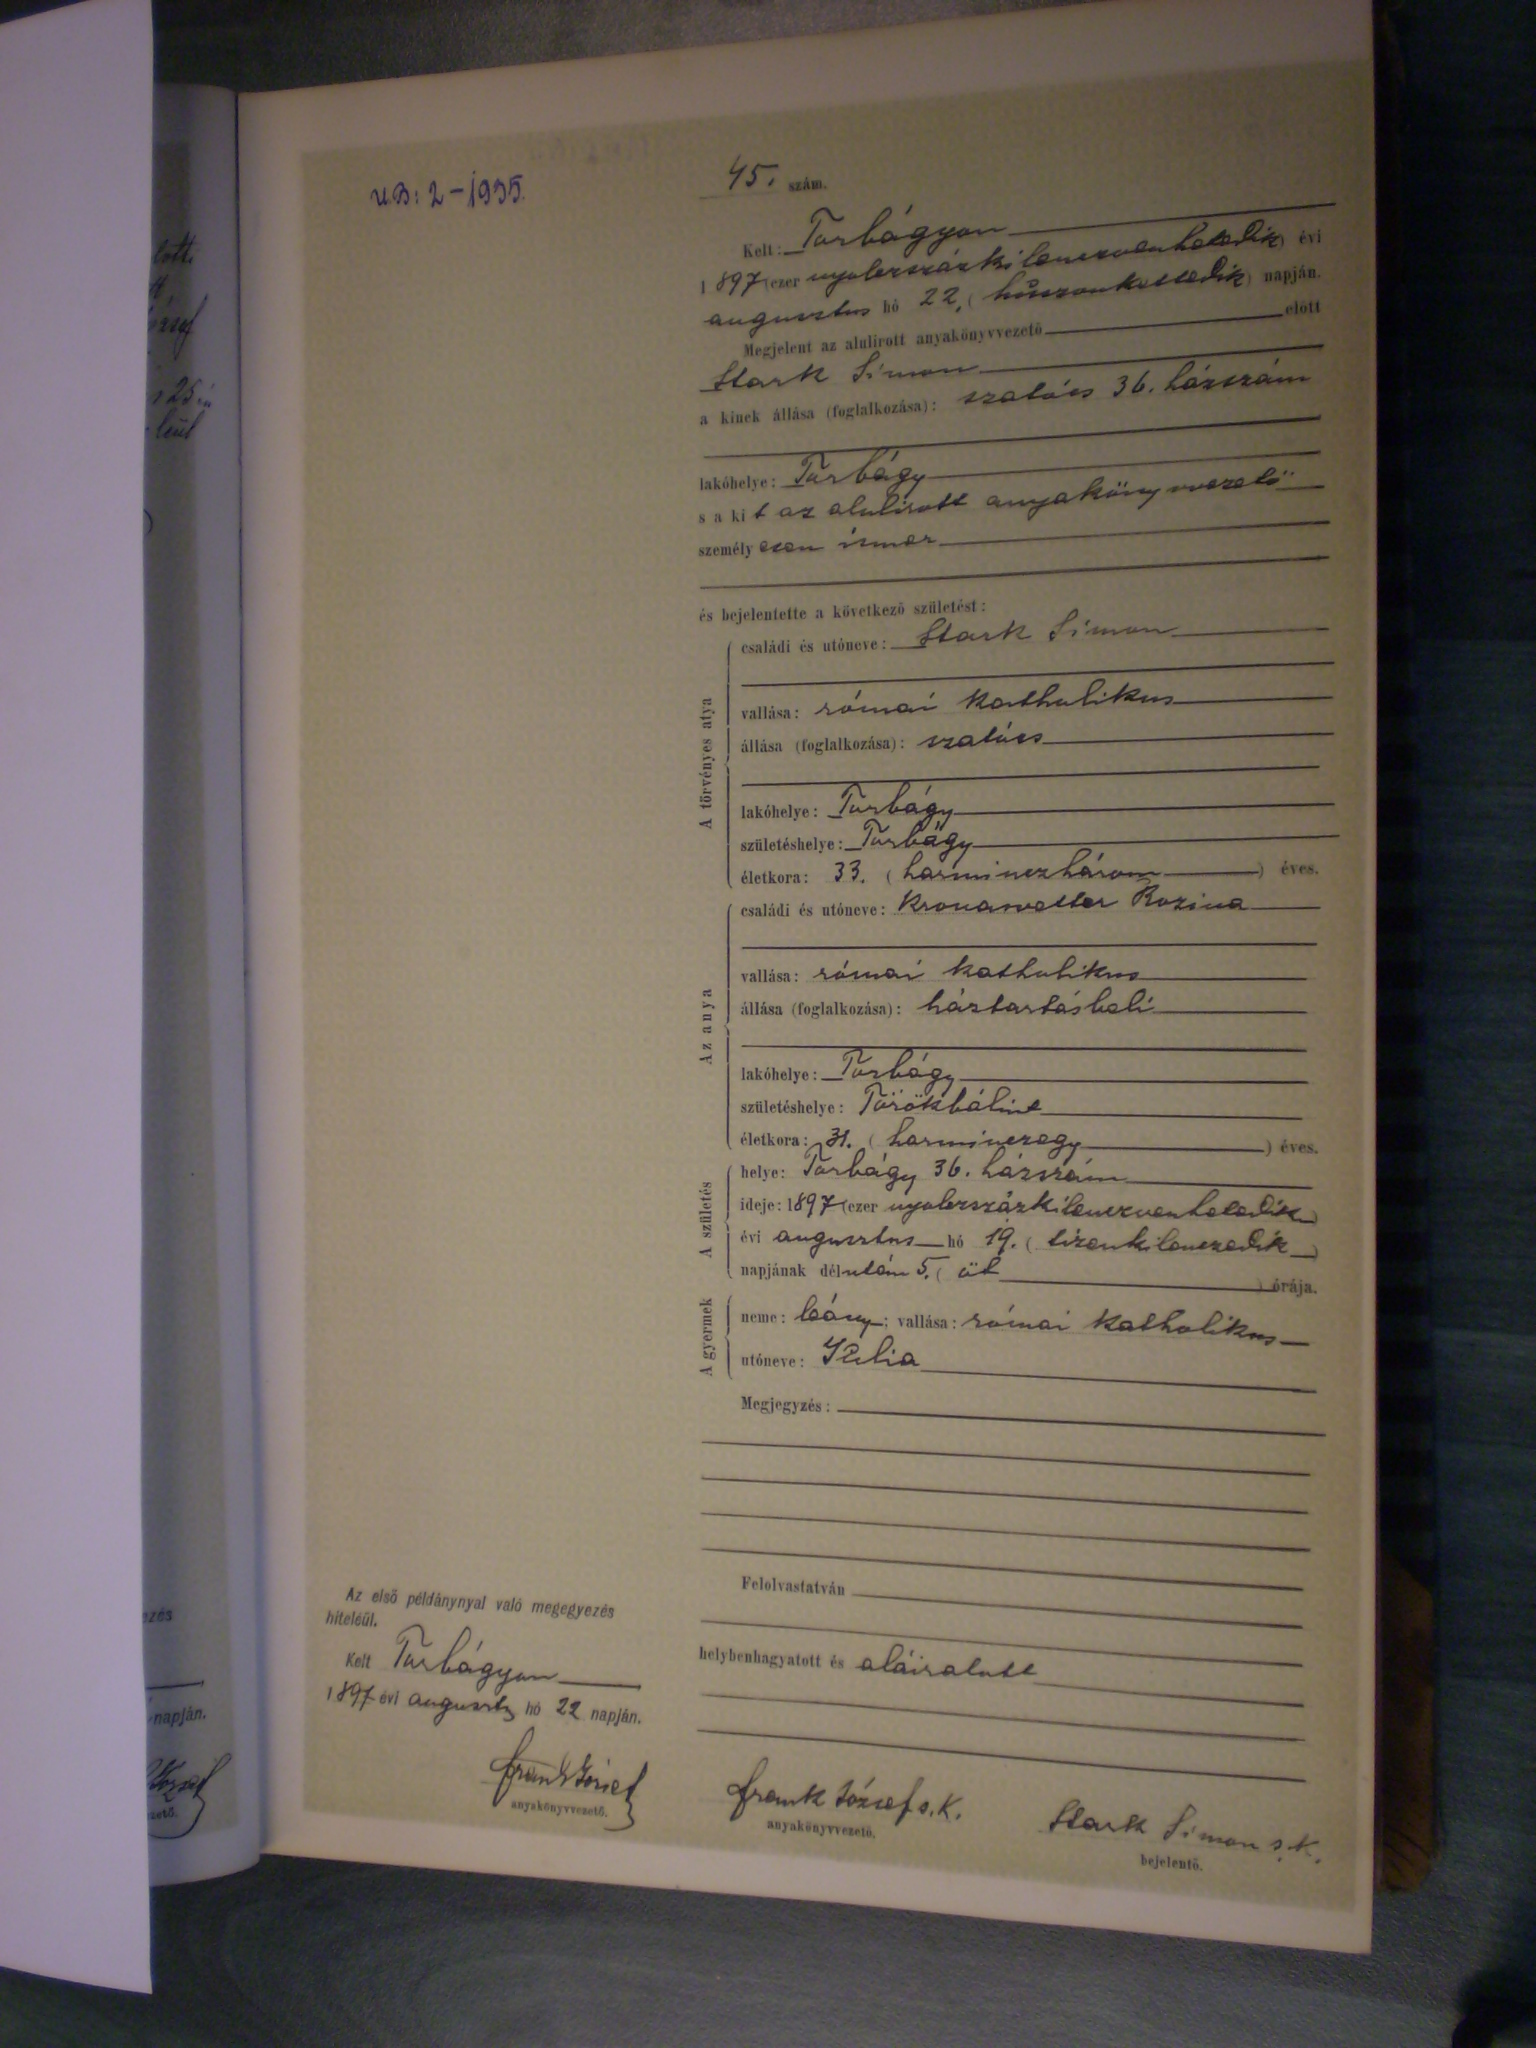 U.B: 2-1935.
45. szám.
Kelt: Torbágyon
1897 (ezer nyolczszázkilenczvenhetedik) évi
augusztus hó 22. (huszonkettedik) napján.
Megjelent az alulirott anyakönyvvezető előtt
Stark Simon
a kinek állása (foglalkozása): szatócs 36. házszám
lakóhelye: Torbágy
s a kit az alulirott anyakönyvvezető
személyesen ismer
és bejelentette a következő születést:
A törvényes atya
családi és utóneve: Stark Simon
vallása: római katholikus
állása (foglalkozása): szatócs
lakóhelye: Torbágy
születéshelye: Torbágy
életkora: 33. (harminczhárom) éves.
Az anya
családi és utóneve: Kronawetter Rozina
vallása: római katholikus
állása (foglalkozása): háztartásbeli
lakóhelye: Torbágy
születéshelye: Törökbálint
életkora: 31. (harminczegy) éves.
A születés
helye: Torbágy 36. házszám
ideje: 1897 (ezer nyolczszázkilenczvenhetedik)
évi augusztus hó 19. (tizenkilenczedik)
napjának délután 5. (öt) órája.
A gyermek
neme: leány; vallása: római katholikus
utóneve: Júlia
Megjegyzés:
Felolvastatván
helybenhagyatott és aláiratott
Az első példánynyal való megegyezés
hiteléül.
Kelt Torbágyon
1897 évi augusztus hó 22 napján.
Frank József
anyakönyvvezető.
Frank József s.k.
anyakönyvvezető.
Stark Simon s.k.
bejelentő.
napján.